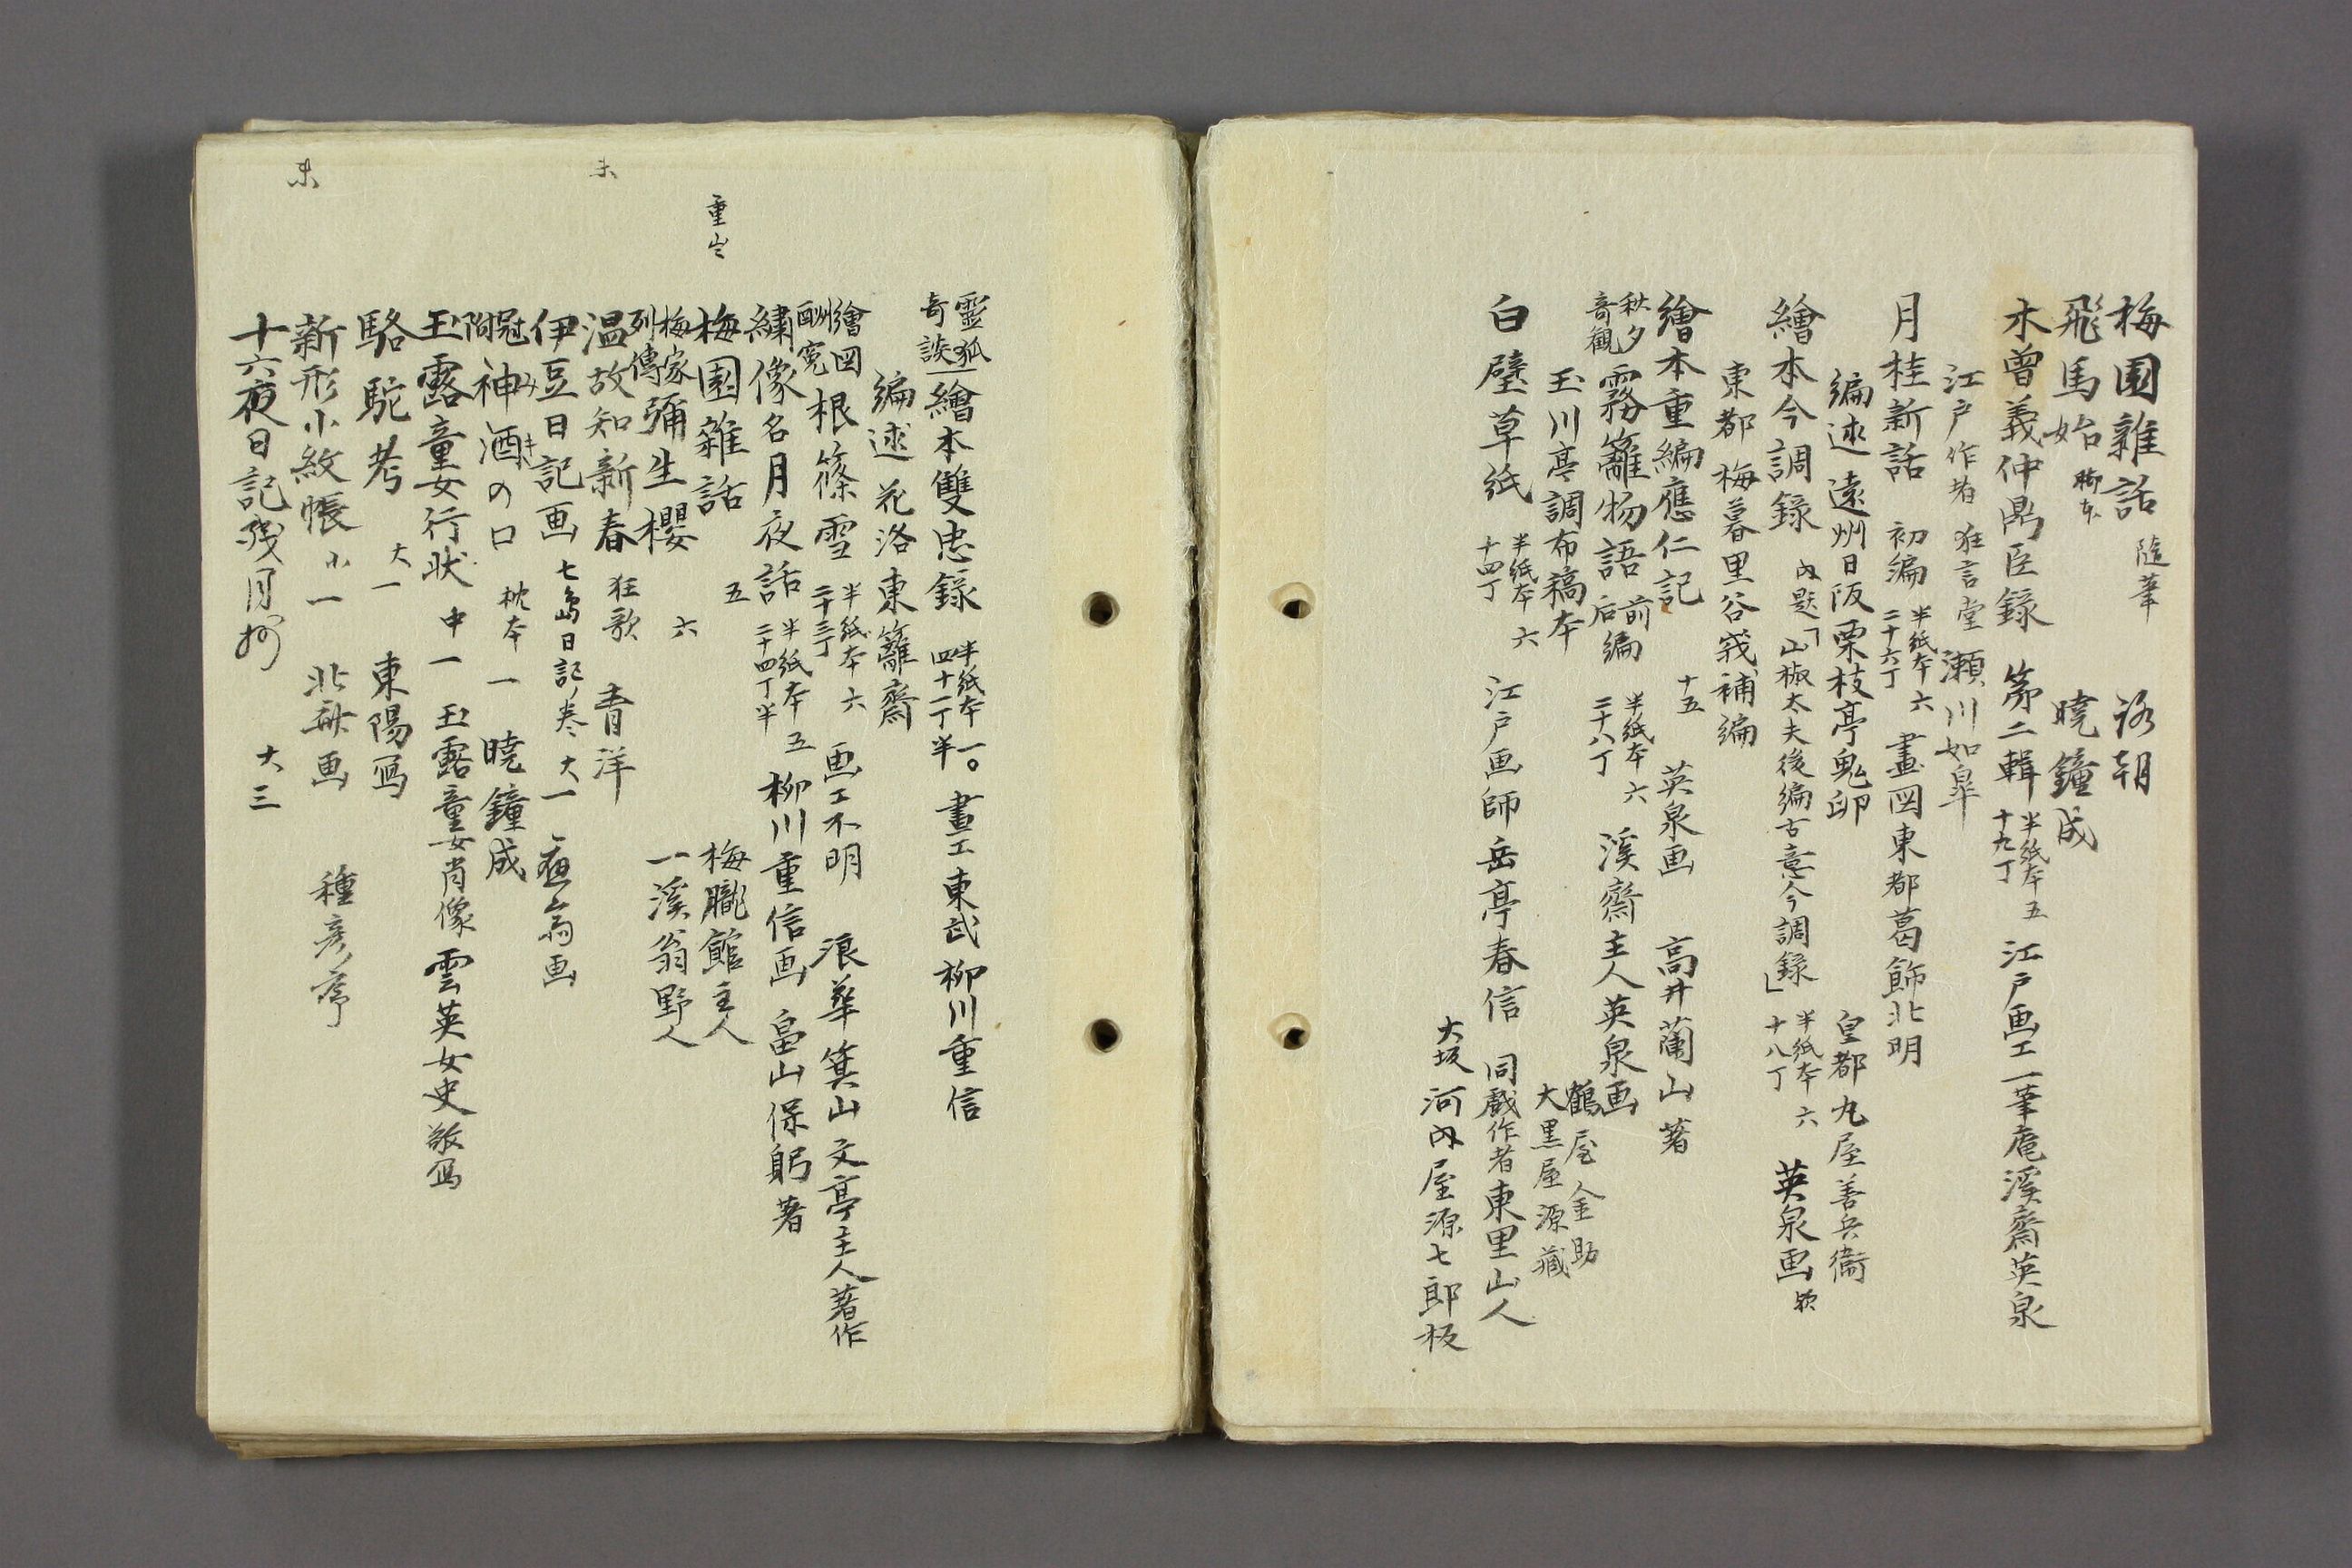 梅園雜話 隨筆 洛朝
飛馬始 曉鐘成
木曾義仲鼎臣錄 第二輯 半紙本 十九丁 五 江戸画工一筆庵溪齋英泉
江戸作者 狂言堂 瀬川如皐
月桂新話 初編 半紙本 二十六丁 六 畫図東都葛飾北明
編述 遠州日阪栗枝亭鬼卵 皇都 丸屋善兵衞
繪本今調錄 内題「山椒太夫後編古意今調錄」 半紙本 十八丁 六 英泉画
東都 梅暮里谷峩補編
繪本重編應仁記 十五 英泉画 高井蘭山著
秋夕奇観 霧籬物語 前后編 半紙本 二十八丁 六 溪齋主人英泉画
玉川亭調布稿本 鶴屋金助 大黒屋源藏
白壁草紙 半紙本 十四丁 六 江戸画師岳亭春信 同戲作者東里山人
大坂 河内屋源七郎板
靈狐奇談 繪本雙忠錄 半紙本 四十一丁半 一。 畫工東武 柳川重信
編述 花洛東籬齋
繪図酬寃 根篠雪 半紙本 二十三丁 六 画工不明 浪華 箕山文亭主人著作
繍像名月夜話 半紙本 二十四丁半 五 柳川重信画 畠山保躬著
重出
梅園雜話 五 梅朧館主人
梅家列傳 彌生櫻 六 一溪翁野人
未
温故知新春 狂歌 青洋
伊豆日記画 七島日記ノ巻 大一
冠附 神酒の口 みき 枕本 一 曉鐘成
玉露童女行状 中一 玉露童女肖像 雲英女史敬写
駱駝考 大一 東陽写
未
新形小紋帳 小一 北齋画 種彦序
十六夜日記残月抄 大三